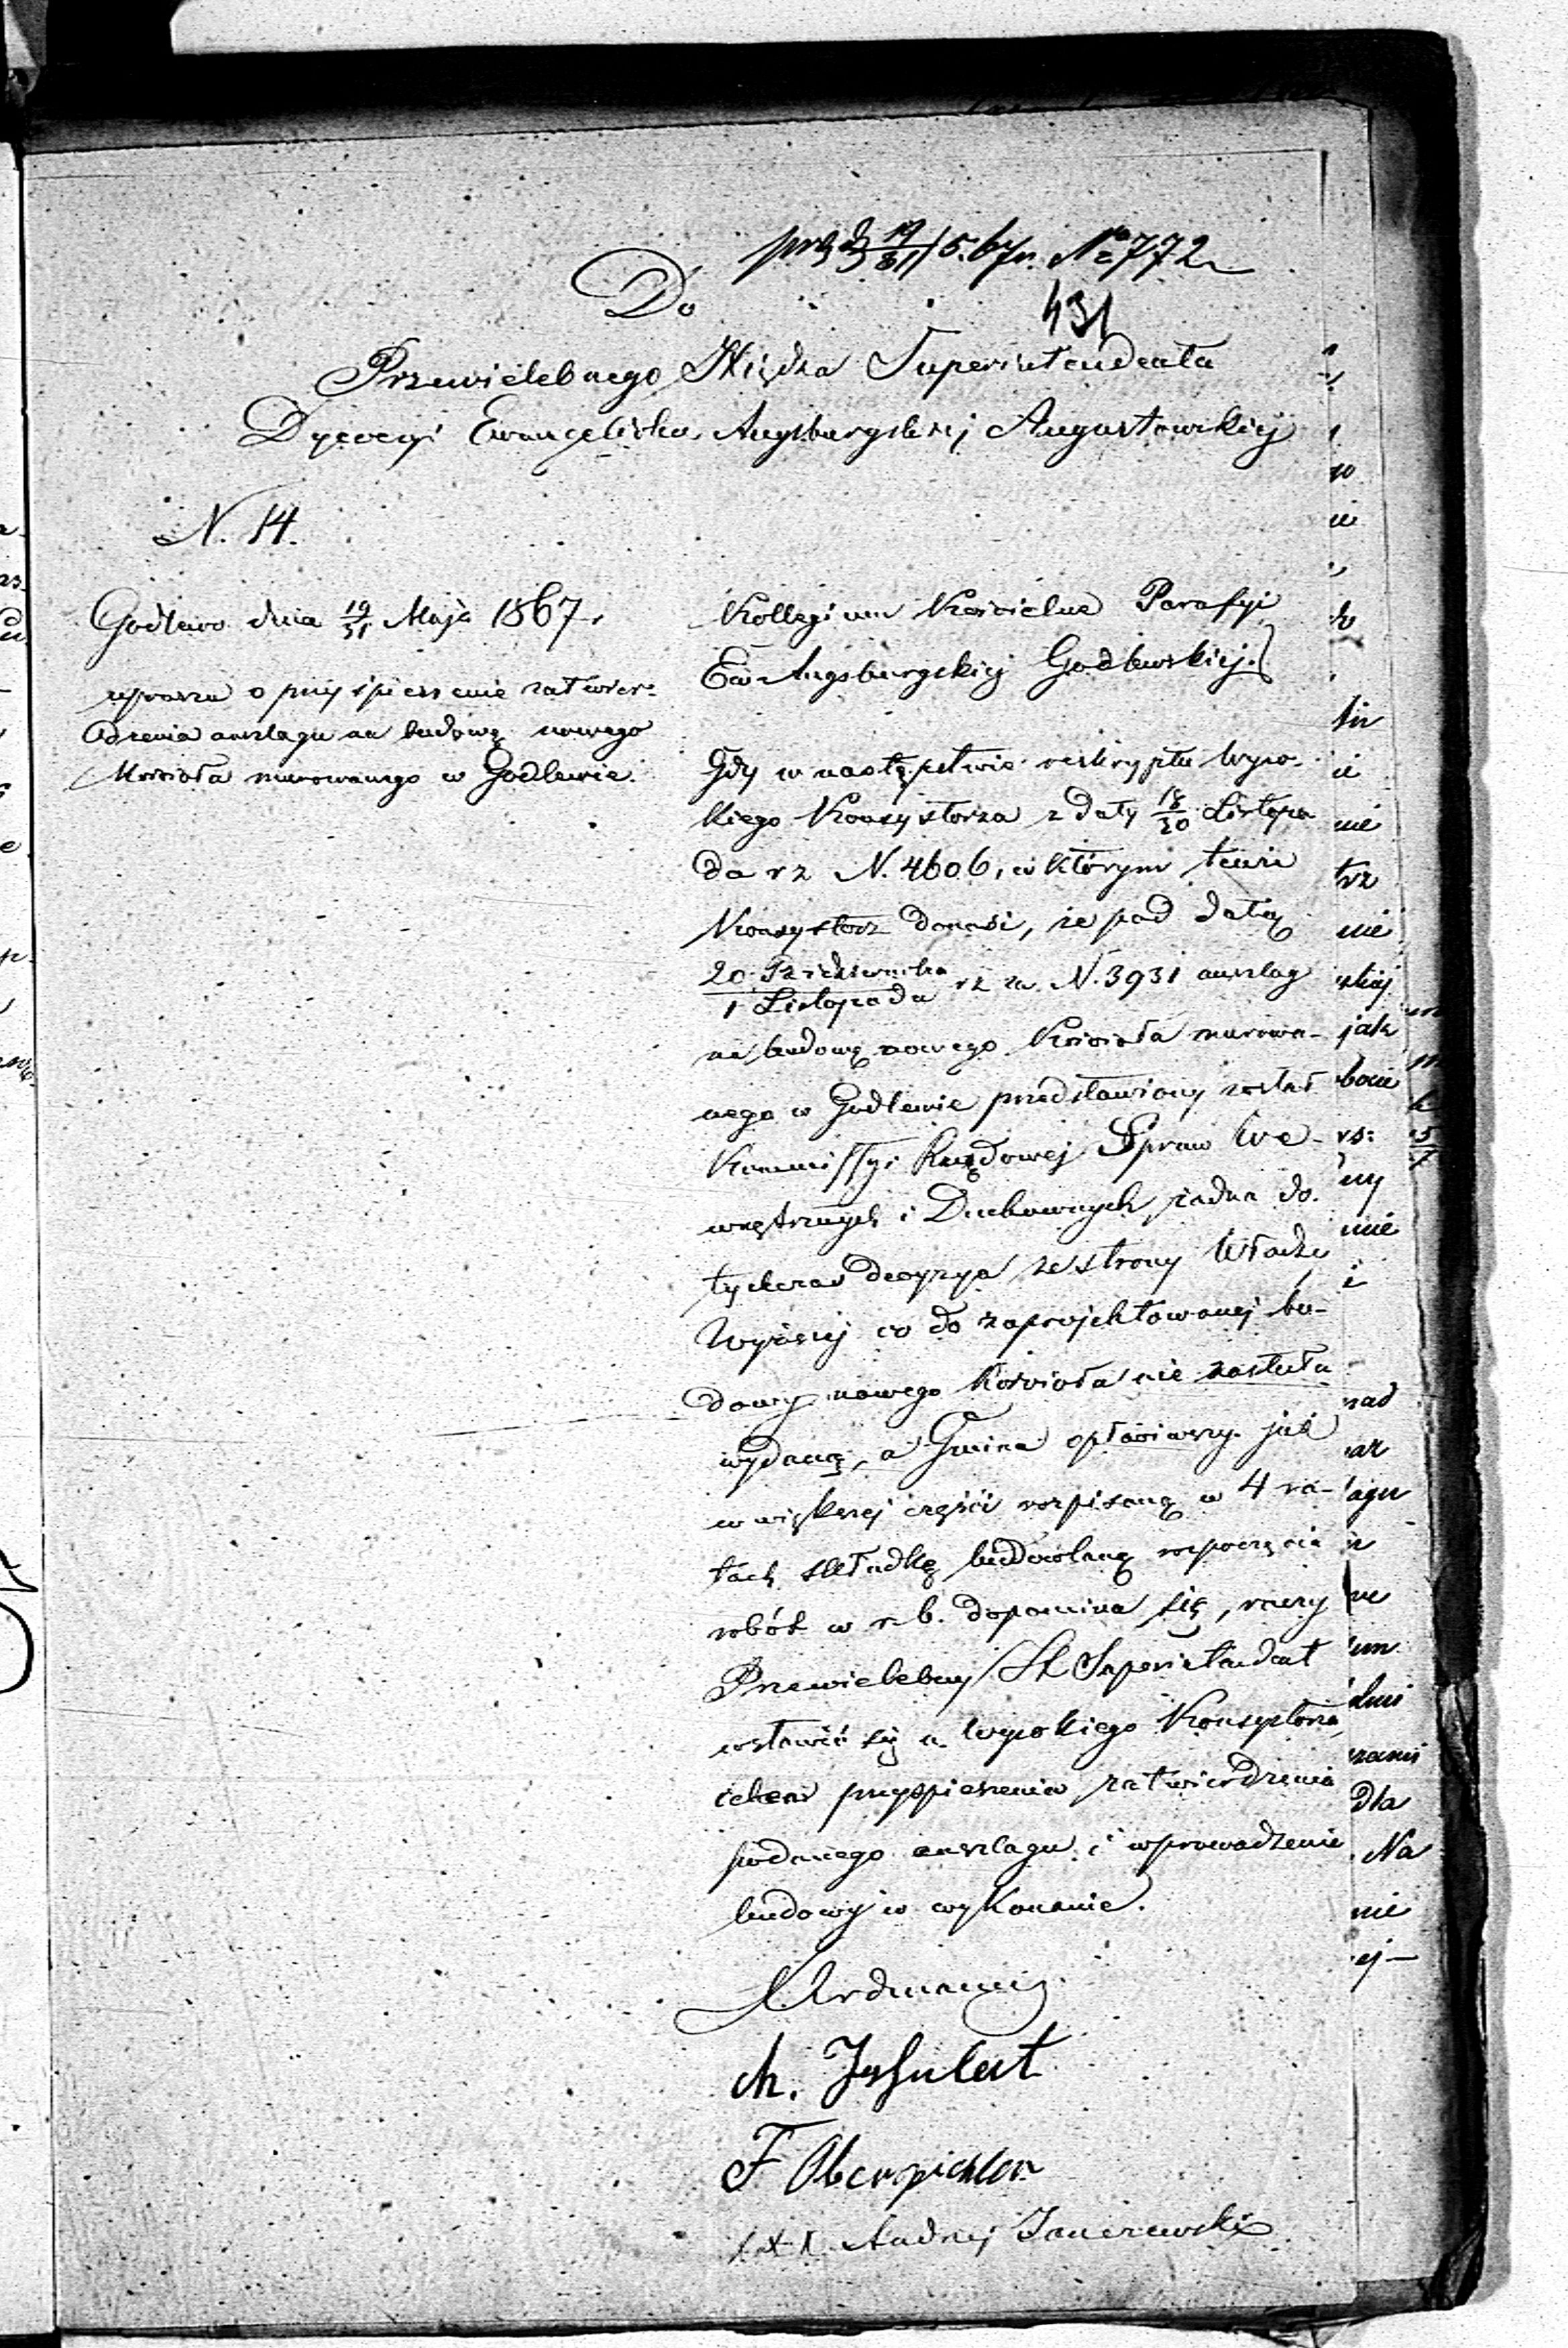 19/31/5. 67 r. № 772
431
Do
Przewielebnego Xiędza Superintendenta
Dyecezyi Ewangelicko Augsburgskiej Augustowskiej
N. 14.
Godlewo dnia 19/31 Maja 1867 r.
uprasza o przyśpieszenie zatwier-
dzenia anszlagu na budowę nowego
Kościoła murowanego w Godlewie.
Kollegium Kościelne Parafyi
Ew. Augsburgskiej Godlewskiej.
Gdy w następstwie reskryptu Wyso-
kiego Konsystorza z daty 18/30 Listopa
da r z N. 4606, w którym tenże
Konsystorz donosi, że pod datą
20 Października/1 Listopada r z za N. 3931 anszlag
na budowę nowego Kościoła murowa-
nego w Godlewie przedstawiony został
Kommissyi Rządowej Spraw We-
wnętrznych i Duchownych żadna do
tychczas decyzya ze strony Władzy
Wyższej co do zaprojektowanej bu-
dowy nowego Kościoła nie została
wydaną, a Gmina opłaciwszy już
w większej części rozpisaną w 4 ra-
tach składkę budowlaną rozpoczęcia
robót w r. b. dopomina się, raczy
Przewielebny X Superintendent
wstawić się u Wysokiego Konsystorza
celem przyspieszenia zatwierdzenia
podanego anszlagu i wprowadzenie
budowy w wykonanie.
F Oberpichler
XXX Andrzej Janczewski